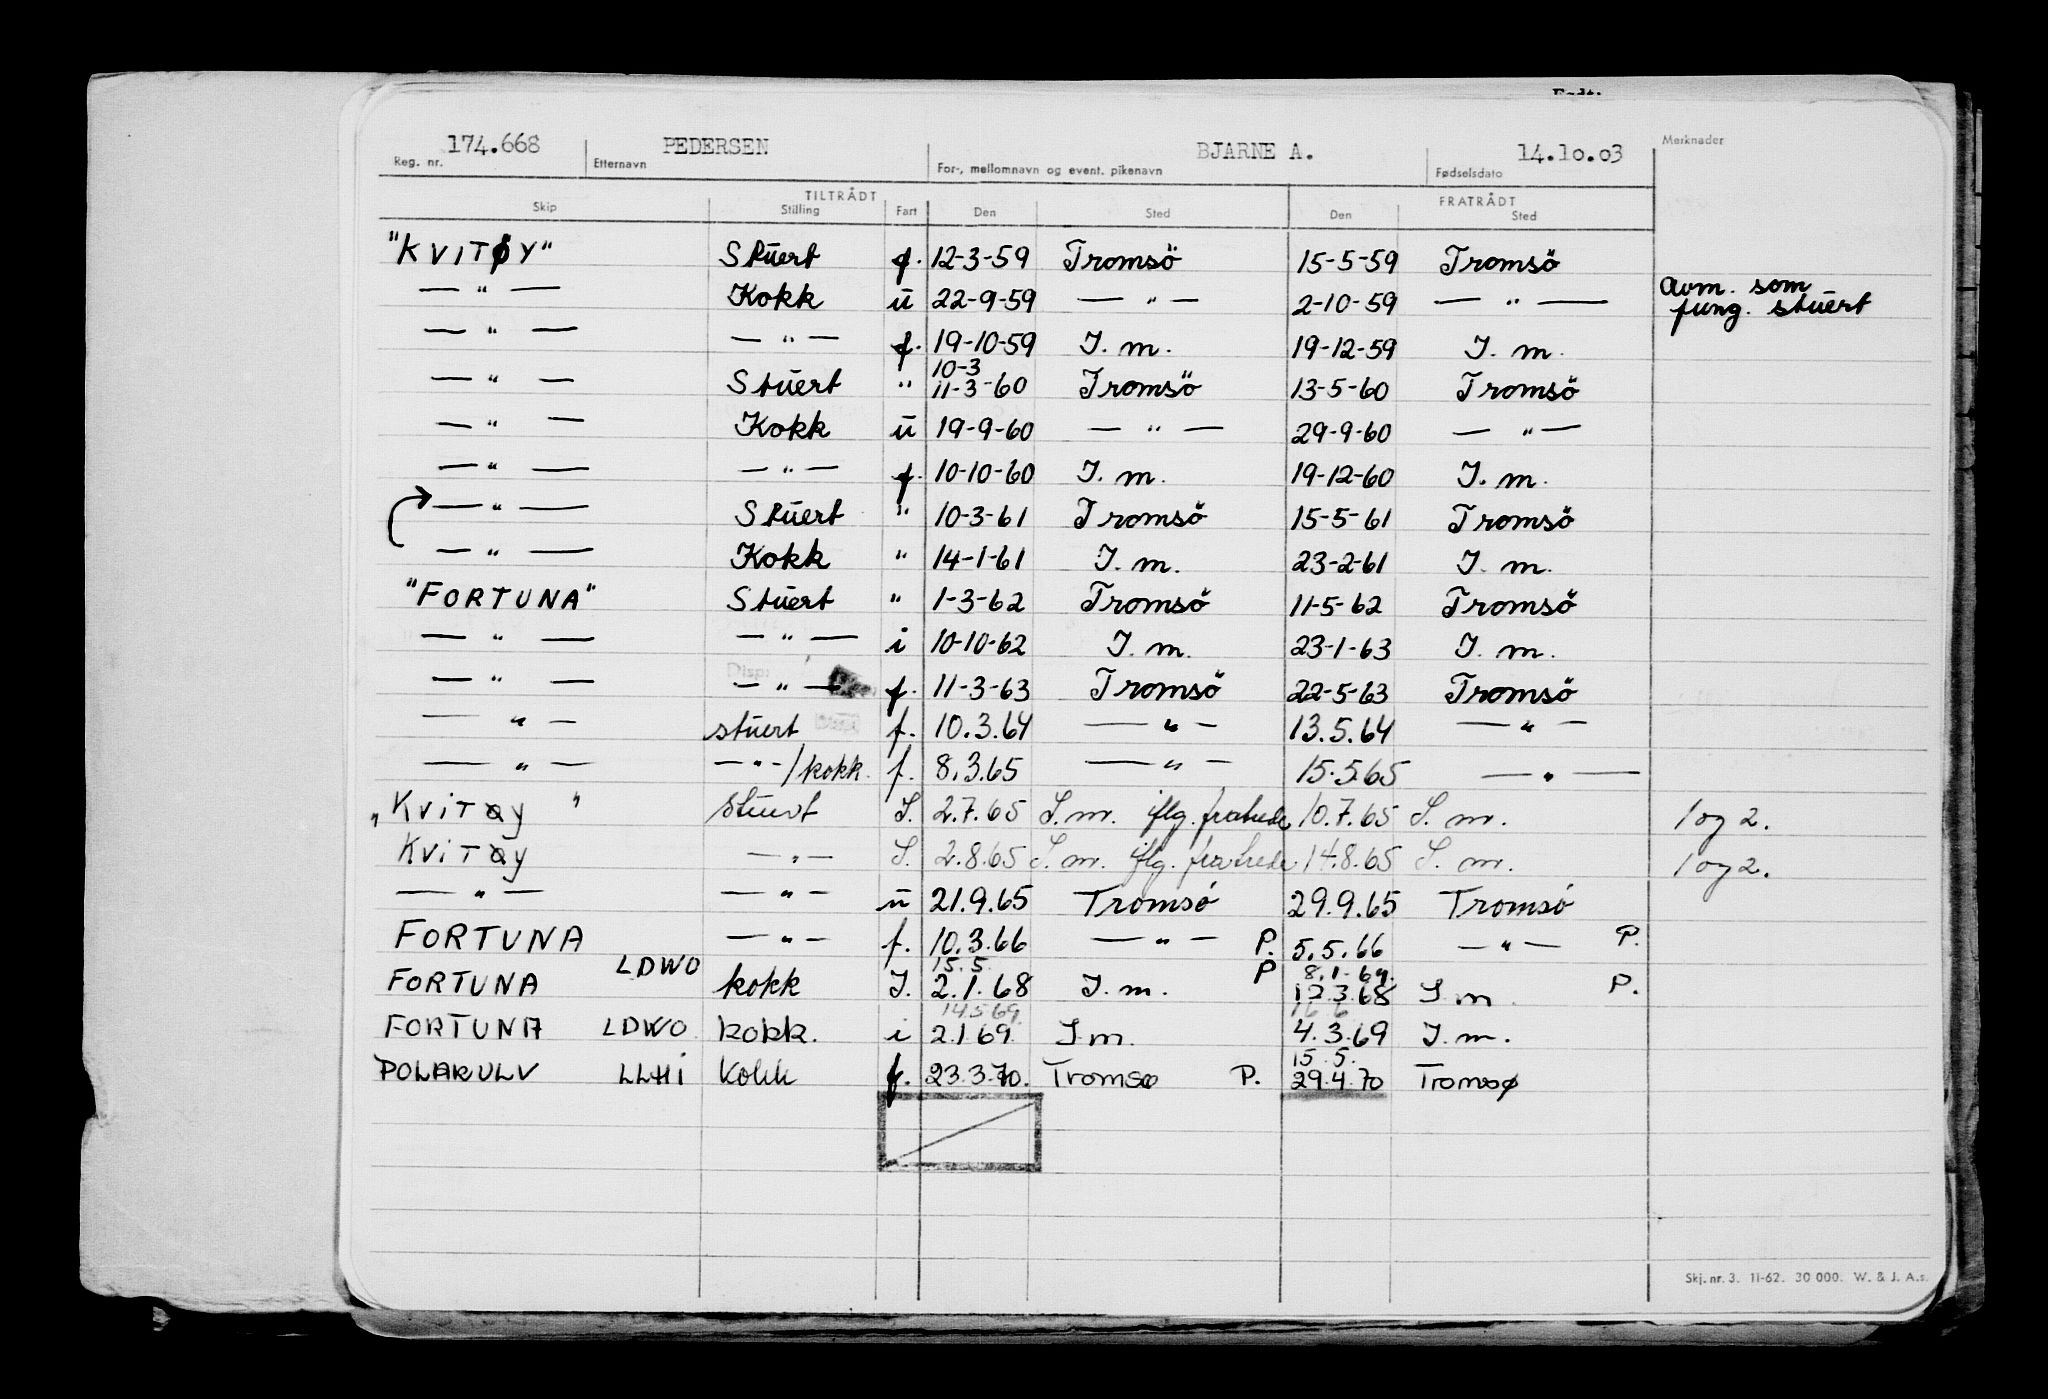 Født:
174.668 PEDERSEN BJARNE A. 14.10.03 Merknader
Reg. nr. Etternavn For-, mellomnavn og event. pikenavn Fødselsdato
TILTRÅDT FRATRÅDT
Skip Stilling Fart Den Sted Den Sted
"KVITØY" Stuert f. 12-3-59 Tromsö 15-5-59 Tromsö
— " — Kokk u 22-9-59 — " — 2-10-59 — " — avm. som
fung. stuert
— " — — " — f. 19-10-59 I. m. 19-12-59 I. m.
10-3
— " — Stuert " 11-3-60 Tromsö 13-5-60 Tromsö
— " — Kokk u 19-9-60 — " — 29-9-60 — " —
— " — — " — f. 10-10-60 I. m. 19-12-60 I. m.
— " — Stuert " 10-3-61 Tromsö 15-5-61 Tromsö
— " — Kokk " 14-1-61 I. m. 23-2-61 I. m.
"FORTUNA" Stuert " 1-3-62 Tromsö 11-5-62 Tromsö
— " — — " — i 10-10-62 I. m. 23-1-63 I. m.
— " — — " — f. 11-3-63 Tromsö 22-5-63 Tromsö
— " — stuert f. 10.3.64 — " — 13.5.64 — " —
— " — — " — / kokk. f. 8.3.65 — " — 15.5.65 — " —
"KViTøy" stuert I. 2.7.65 I. m. iflg. fratrede 10.7.65 I. m. 1 og 2.
KViTøy — " — I. 2.8.65 I. m. iflg. fratrede 14.8.65 I. m. 1 og 2.
— " — — " — u 21.9.65 Tromsø 29.9.65 Tromsø
FORTUNA — " — f. 10.3.66 — " — P. 5.5.66 — " — P.
LDWO 15.5. P 8.1.69.
FORTUNA kokk I. 2.1.68 I. m. 12.3.68 I m. P.
14.5.69. 16.6
FORTUNA LDWO. kokk. i 2.1.69. I m. 4.3.69 I. m.
15.5.
POLARULV LLHI Kokk f. 23.3.70. Tromsø P. 29.4.70 Tromsø
Skj. nr. 3. 11-62. 30 000. W. & J. A.s.